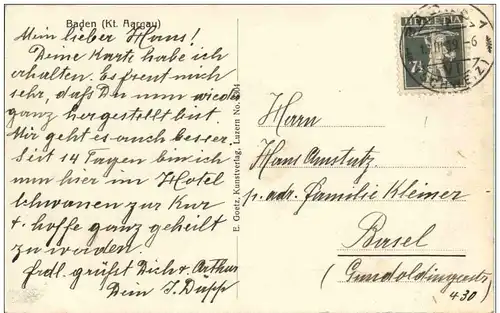 Baden (Kt. Aargau)
Mein lieber Hans!
Deine Karte habe ich
erhalten. Es freut mich
sehr, daß Du nun wieder
ganz hergestellt bist.
Mir geht es auch besser.
Seit 14 Tagen bin ich
nun hier im Hotel
Schwanen zur Kur
+ hoffe ganz geheilt
zu werden
frdl. grüßt Dich + Arthur
Dein J. Düpp
E. Goetz, Kunstverlag, Luzern No.
HELVETIA
7½
Herrn
Hans Amstutz
p. adr. Familie Kleiner
Basel
(Gundoldingerstr
430)